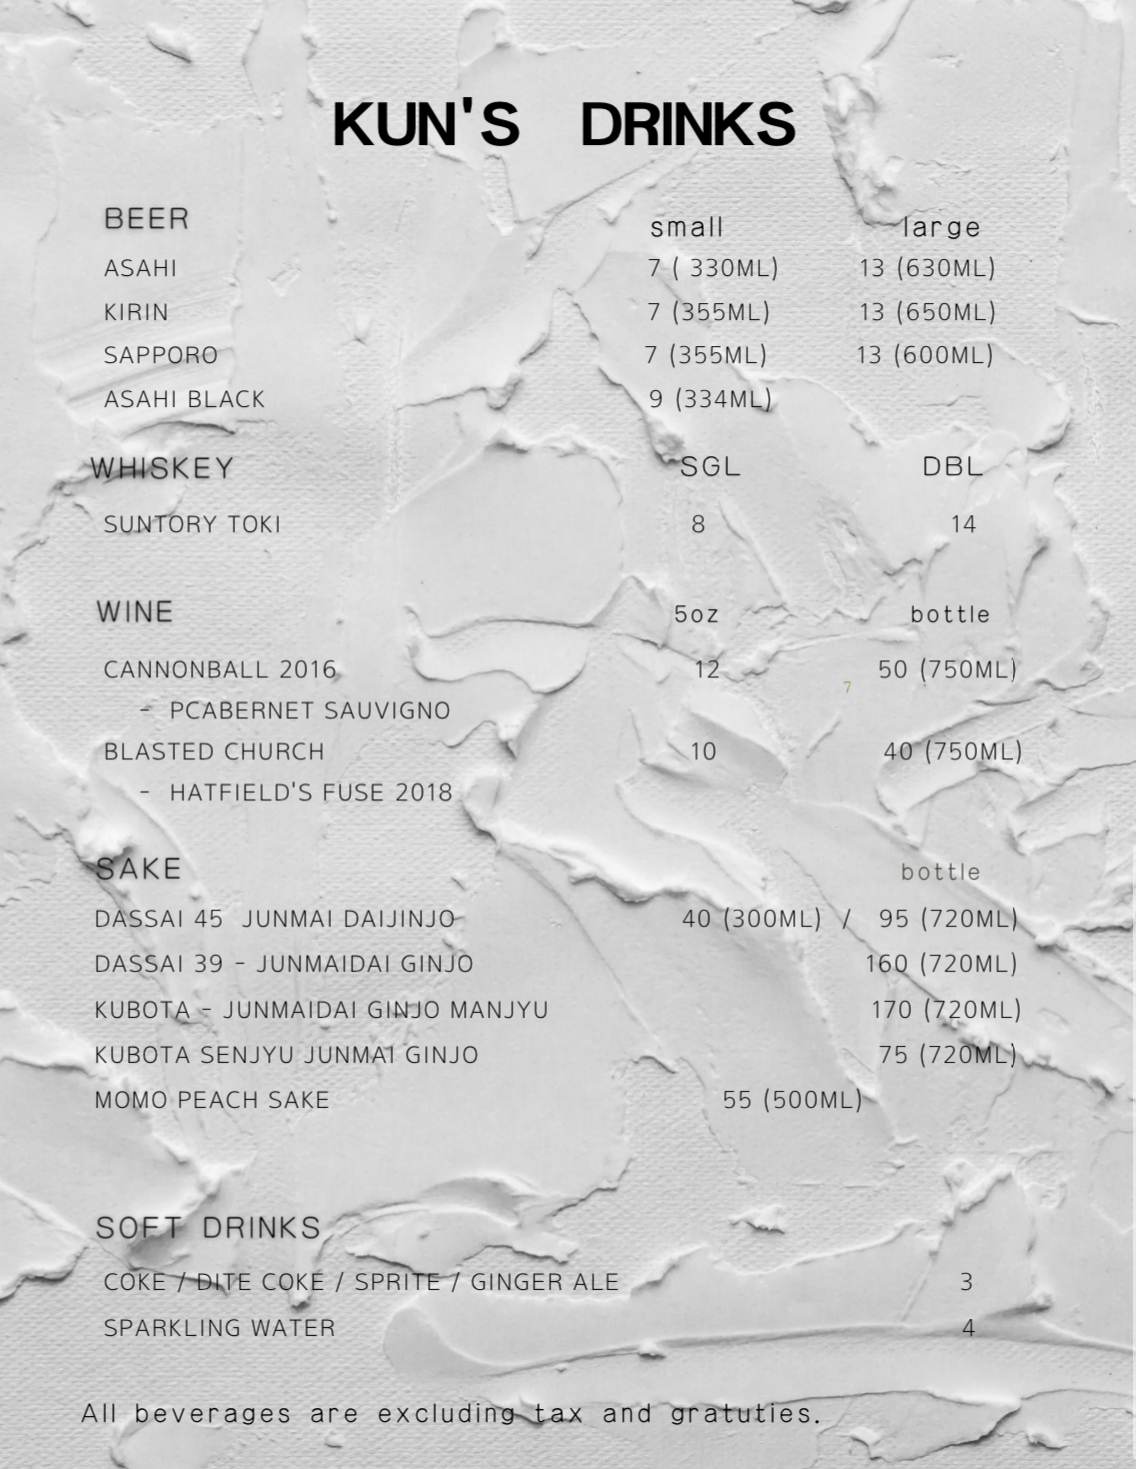 KUN'S DRINKS
BEER small large
ASAHI 7 ( 330ML) 13 (630ML)
KIRIN 7 (355ML) 13 (650ML)
SAPPORO 7 (355ML) 13 (600ML)
ASAHI BLACK 9 (334ML)
WHISKEY SGL DBL
SUNTORY TOKI 8 14
WINE 5oz bottle
CANNONBALL 2016 12 50 (750ML)
7
- PCABERNET SAUVIGNO
BLASTED CHURCH 10 40 (750ML)
- HATFIELD'S FUSE 2018
SAKE bottle
DASSAI 45 JUNMAI DAIJINJO 40 (300ML) / 95 (720ML)
DASSAI 39 - JUNMAIDAI GINJO 160 (720ML)
KUBOTA - JUNMAIDAI GINJO MANJYU 170 (720ML)
KUBOTA SENJYU JUNMAI GINJO 75 (720ML)
MOMO PEACH SAKE 55 (500ML)
SOFT DRINKS
COKE / DITE COKE / SPRITE / GINGER ALE 3
SPARKLING WATER 4
All beverages are excluding tax and gratuties.